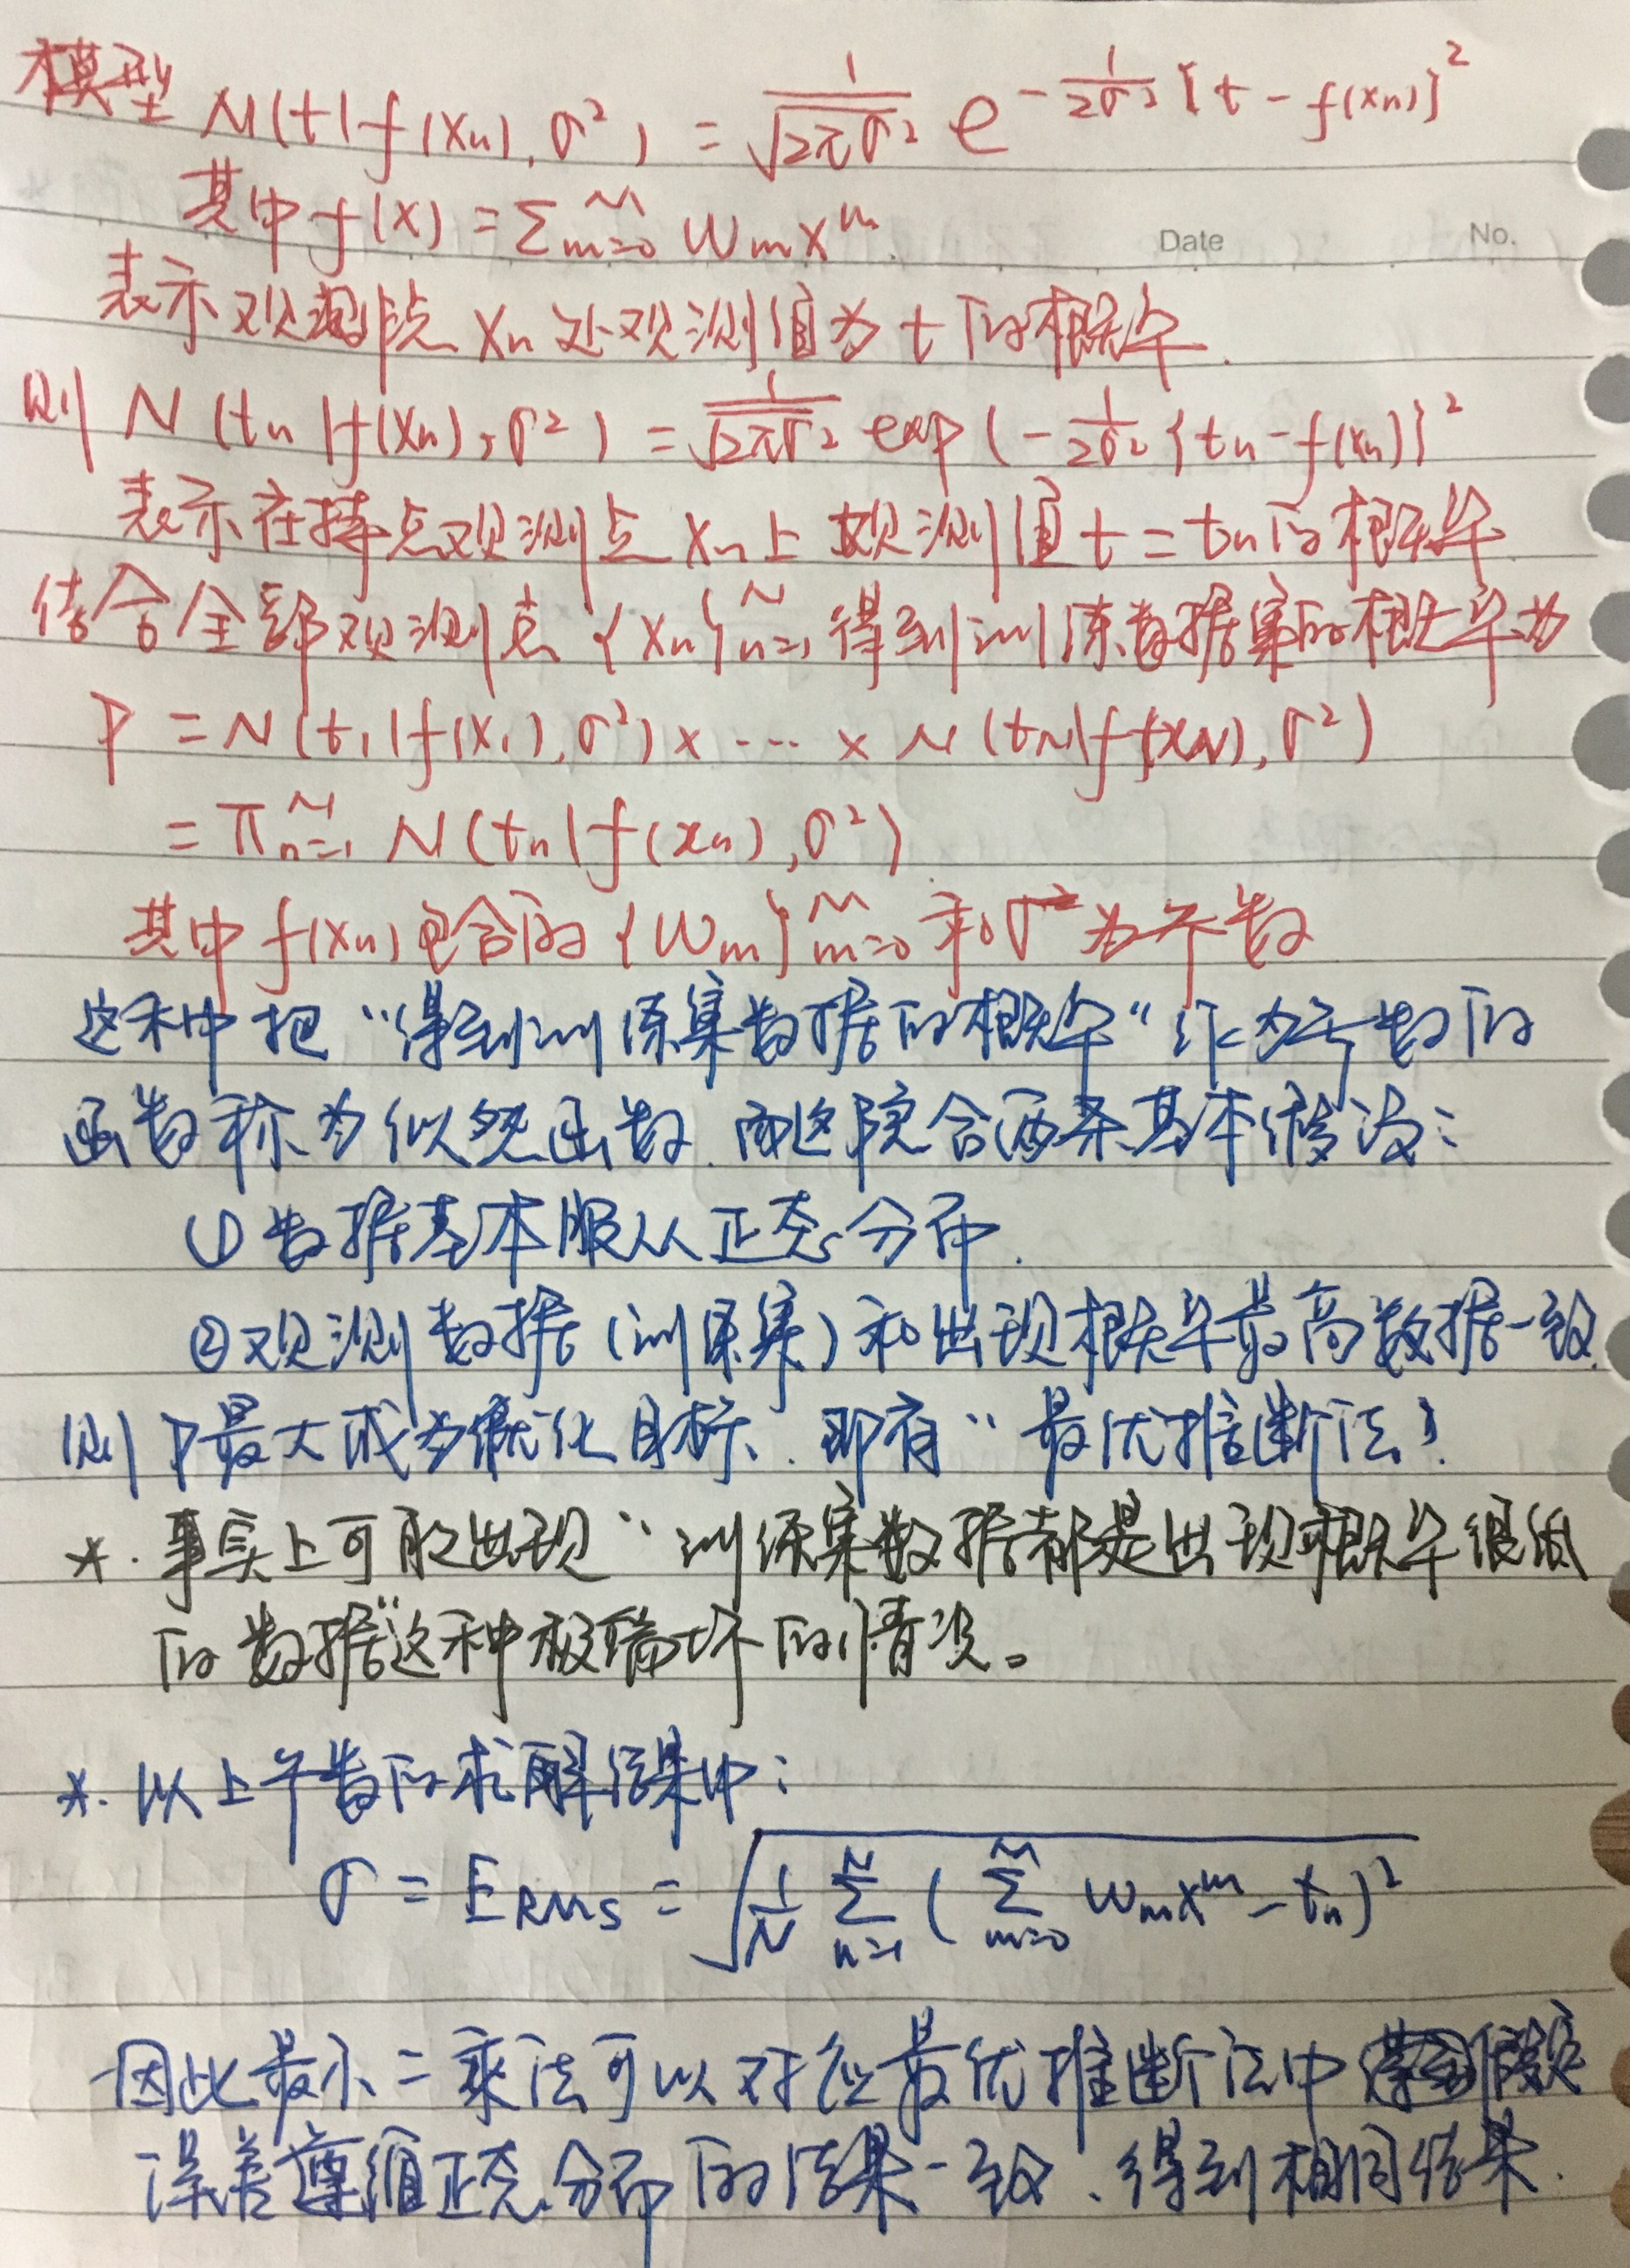 模型 N(t|f(xn), σ²) = 1/√(2πσ²) e^(-1/(2σ²) [t - f(xn)]²
其中 f(x) = Σ_{m=0}^{M} wm x^m.
Date No.
表示观测点 xn 处观测值为 t 的概率.
则 N(tn|f(xn), σ²) = 1/√(2πσ²) exp(-1/(2σ²) {tn - f(xn)}²
表示在 观测点 xn 上 观测值 t = tn 的概率
结合全部观测点 {xn}_{n=1}^{N} 得到训练数据集的概率为
P = N(t1|f(x1), σ²) × ··· × N(tN|f(xN), σ²)
= Π_{n=1}^{N} N(tn|f(xn), σ²)
其中 f(xn) 包含的 {wm}_{m=0}^{M} 和 σ² 为参数
这种把“得到训练集数据的概率“作为参数的
函数称为似然函数. 而这 含两条基本假设:
① 数据基本服从正态分布.
② 观测数据(训练集)和出现概率最高数据一致.
则 P最大成为优化目标. 即有“最优推断法”.
*. 事实上可能出现“训练集数据都是出现概率很低
的数据“这种极端坏的情况。
*. 以上参数的求解结果中:
σ = E_RMS = √(1/N Σ_{n=1}^{N} (Σ_{m=0}^{M} wm x^m - tn)²
因此最小二乘法可以对应最优推断法中 假定
误差遵循正态分布的结果一致. 得到相同结果.